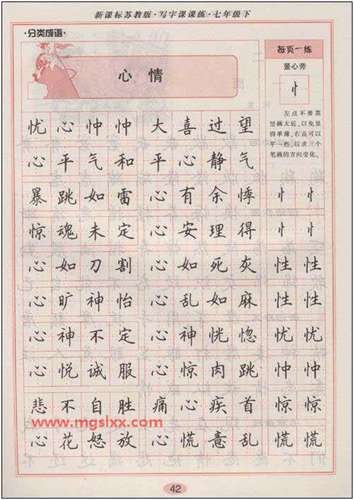 新课标苏教版·写字课课练·七年级下
·分类成语·
心情
每页一练
竖心旁
忄
左点不要离
竖画太近，以免显
得单薄，右点可以
平一些，以求三个
笔画的方向变化。
忧心忡忡 大喜过望
心平气和 平心静气
暴跳如雷 心有余悸 忄忄
惊魂未定 心安理得 忄忄
心如刀割 心如死灰 性性
心旷神怡 心乱如麻 性性
心神不定 心神恍惚 忧忧
心悦诚服 心惊肉跳 忡忡
悲不自胜 痛心疾首 惊惊
www.mgslxx.com
心花怒放 心慌意乱 慌慌
42